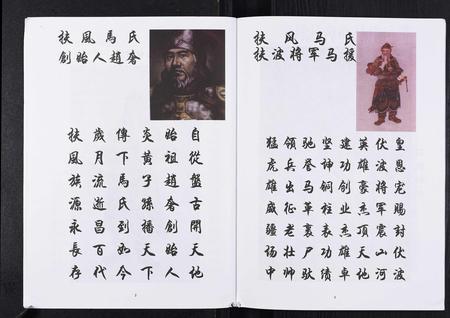 扶風馬氏
創始人趙奢
自從盤古開天地
始祖趙奢創始人
炎黃子孫播天下
傳下馬氏到如今
歲月流逝昌百代
扶風族源永長存
扶风马氏
扶波将军马援
皇恩宠赐封伏波
伏波将军震山河
英雄豪杰顶天地
建功创业杰雄卓
坚神铜柱表功绩
驰马革裹尸驮
领兵出征老壮帅
猛虎雄威疆场中